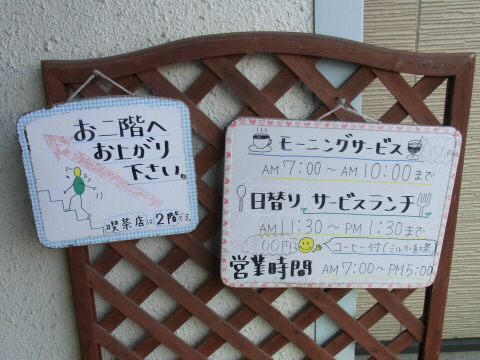 お二階へ
お上がり
下さい。
喫茶店は2階です。
モーニングサービス
AM 7:00〜AM 10:00まで
日替り サービスランチ
AM 11:30〜PM 1:30まで
800円
コーヒー付(ミルク・紅茶)
営業時間 AM 7:00〜PM 5:00